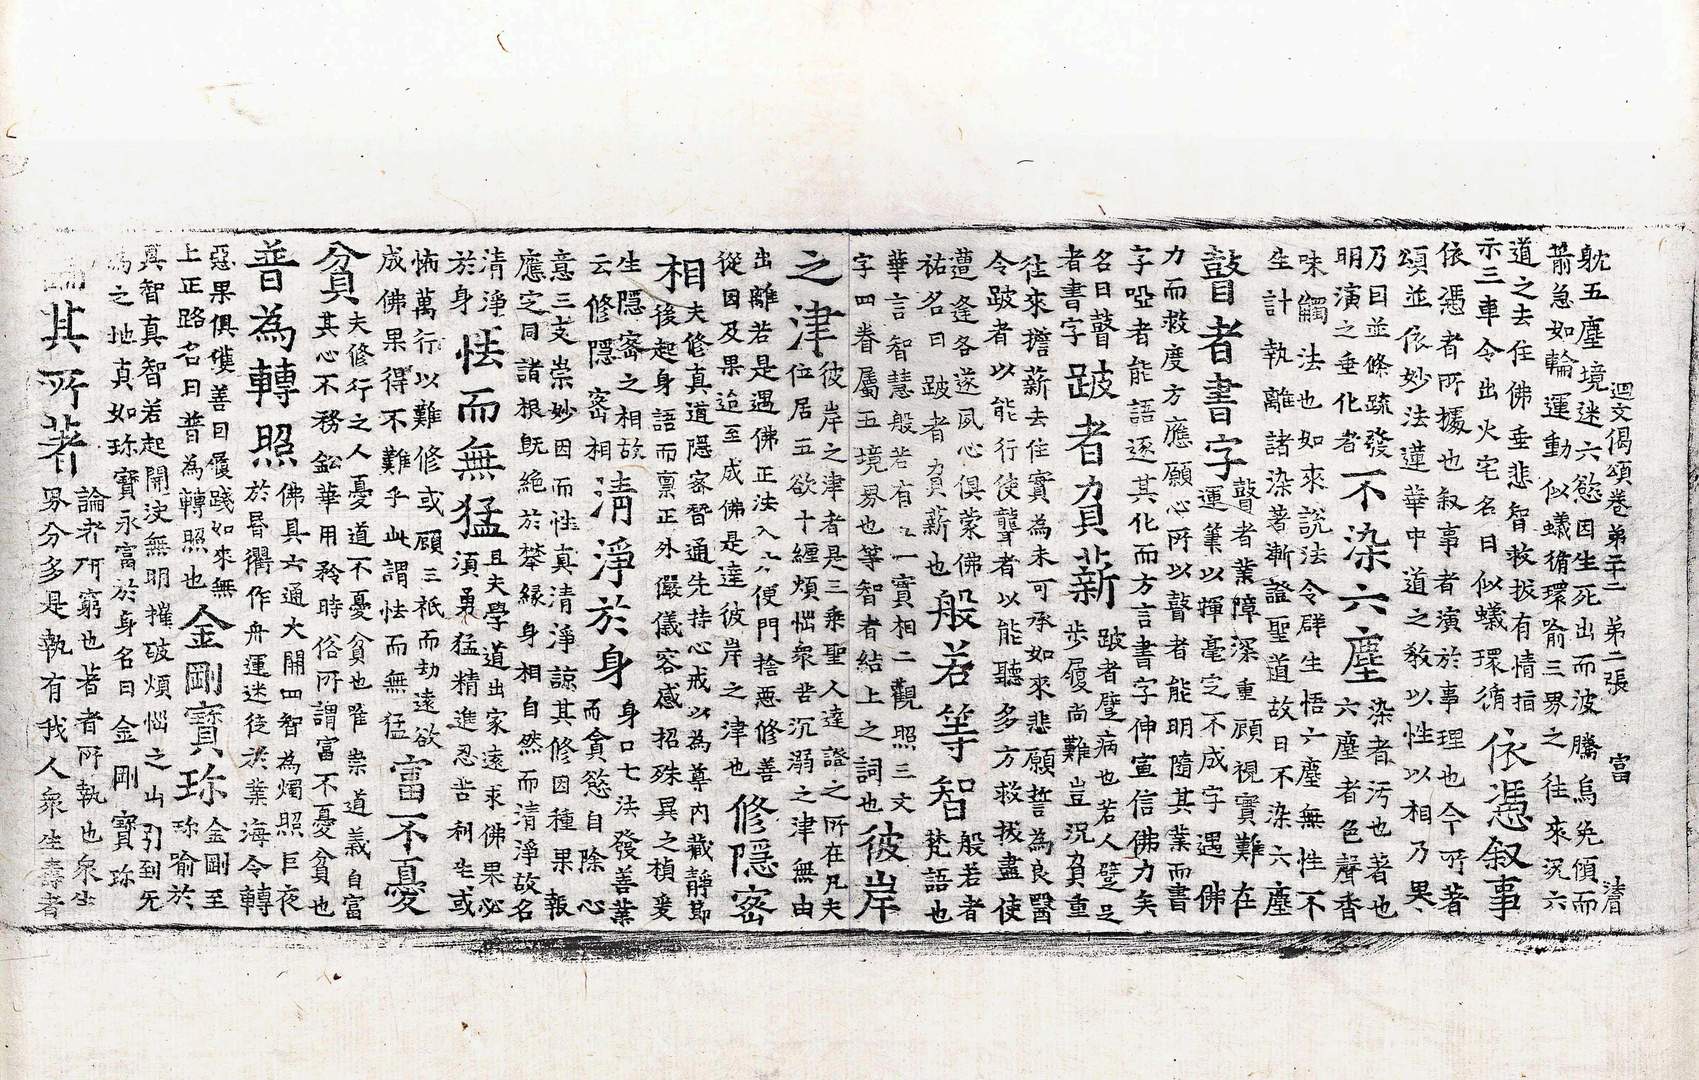 迴文偈頌卷第二 第二張 富
躭五塵境迷六慾因生死出而波騰烏兔傾而
箭急如輪運動似蟻循環喻三界之往來沉六
道之去住佛垂悲智救拔有情指
示三車令出火宅名曰似蟻環循
依憑叙事
依憑者所據也叙事者演於事理也今所著
頌並依妙法蓮華中道之教以性以相乃果
乃因並條疏發
明演之垂化者
不染六塵
染者污也著也
六塵者色聲香
味觸法也如來說法令群生悟六塵無性不
生計執離諸染著漸證聖道故曰不染六塵
瞽者書字
瞽者業障深重願視實難在
運筆以揮毫定不成字遇佛
力而救度方應願心所以瞽者能明隨其業而書
字啞者能語逐其化而方言書字伸宣信佛力矣
名曰瞽
者書字
跛者負薪
跛者躄病也若人躄足
步履尚難豈沉負重
往來擔薪去住實為未可承如來悲願誓為良醫
令跛者以能行使聾者以能聽多方救拔盡使
遭逢各遂夙心俱蒙佛
祐名曰跛者負薪也
般若等智
般若者
梵語也
華言智慧般若有三一實相二觀照三文
字四眷屬五境界也等智者結上之詞也
彼岸
之津
彼岸之津者是三乘聖人達證之所在凡夫
位居五欲十纏煩惱衆苦沉溺之津無由
出離若是遇佛正法入六度便門捨惡修善
從因及果迨至成佛是達彼岸之津也
修隱密
相
夫修真道隱密智通先持心戒以為尊內蘊靜節
後起身語而禀正外儼儀容感招殊異之楨爰
生隱密之相故
云修隱密相
清淨於身
身口七法發善業
而貪慾自除心
意三支崇妙因而性真清淨諒其修因種果報
應定同諸根旣絶於攀緣身相自然而清淨故名
清淨
於身
怯而無猛
且夫學道出家遠求佛果必
須勇猛精進忍苦利生或
怖萬行以難修或顧三祇而劫遠欲
成佛果得不難乎此謂怯而無猛
富不憂
貧
夫修行之人憂道不憂貧也唯崇道義自富
其心不務鈆華用矜時俗所謂富不憂貧也
普為轉照
佛具六通大開四智為燭照巨夜
於昏衢作舟運迷徒於業海令轉
惡果俱獲善因履踐如來無
上正路名曰普為轉照也
金剛寶珎
金剛至
珎喻於
真智真智若起開決無明摧破煩惱之山引到无
為之地真如珎寶永富於身名曰金剛寶珎
其所著
論者所窮也著者所執也衆生
界分多是執有我人衆生壽者